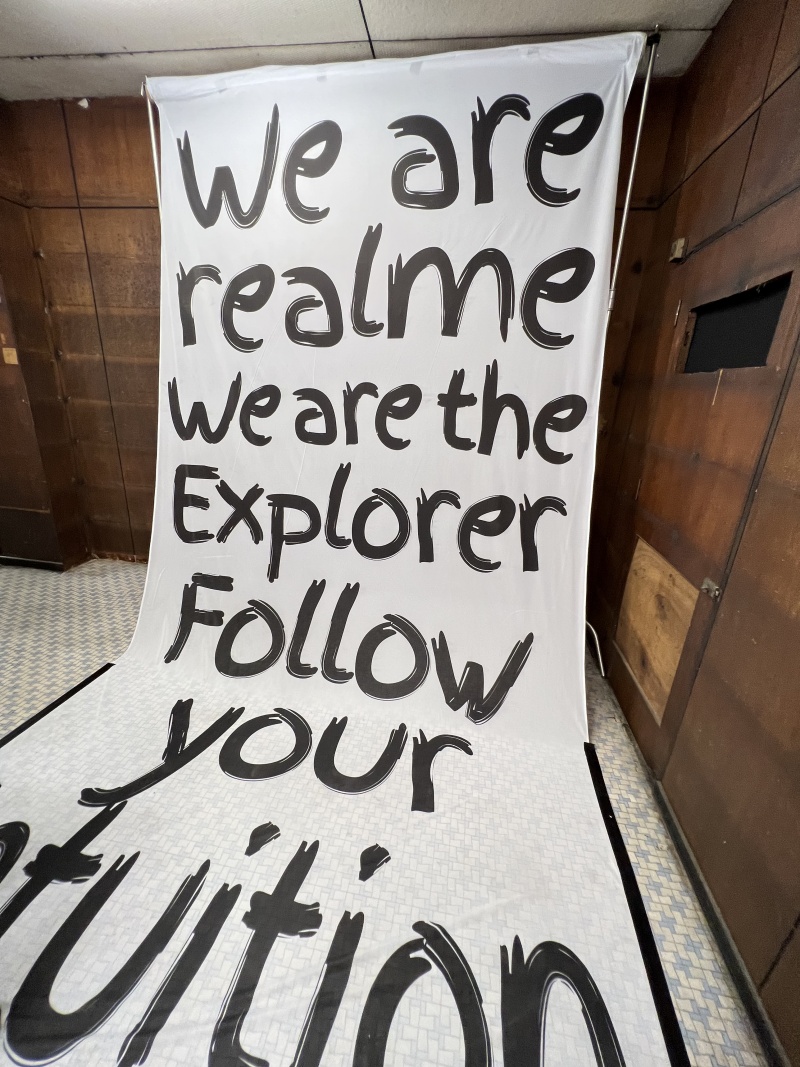 We are
realme
we are the
Explorer
Follow
your
ntuition